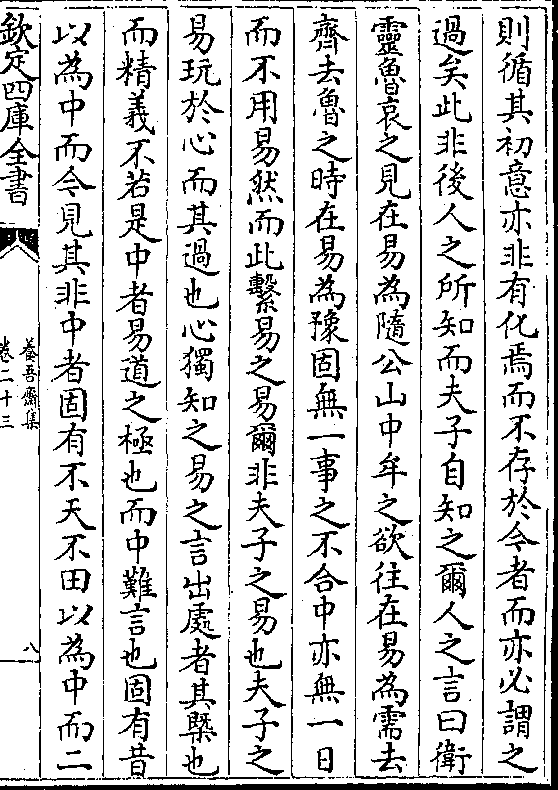 則循其初意亦非有化焉而不存於今者而亦必謂之
過矣此非後人之所知而夫子自知之爾人之言曰衛
靈魯哀之見在易為隨公山中牟之欲往在易為需去
齊去魯之時在易為豫固無一事之不合中亦無一日
而不用易然而此繫易之易爾非夫子之易也夫子之
易玩於心而其過也心獨知之易之言出處者其槩也
而精義不若是中者易道之極也而中難言也固有昔
以為中而今見其非中者固有不天不田以為中而二
欽定四庫全書
養吾齋集
卷二十三
八